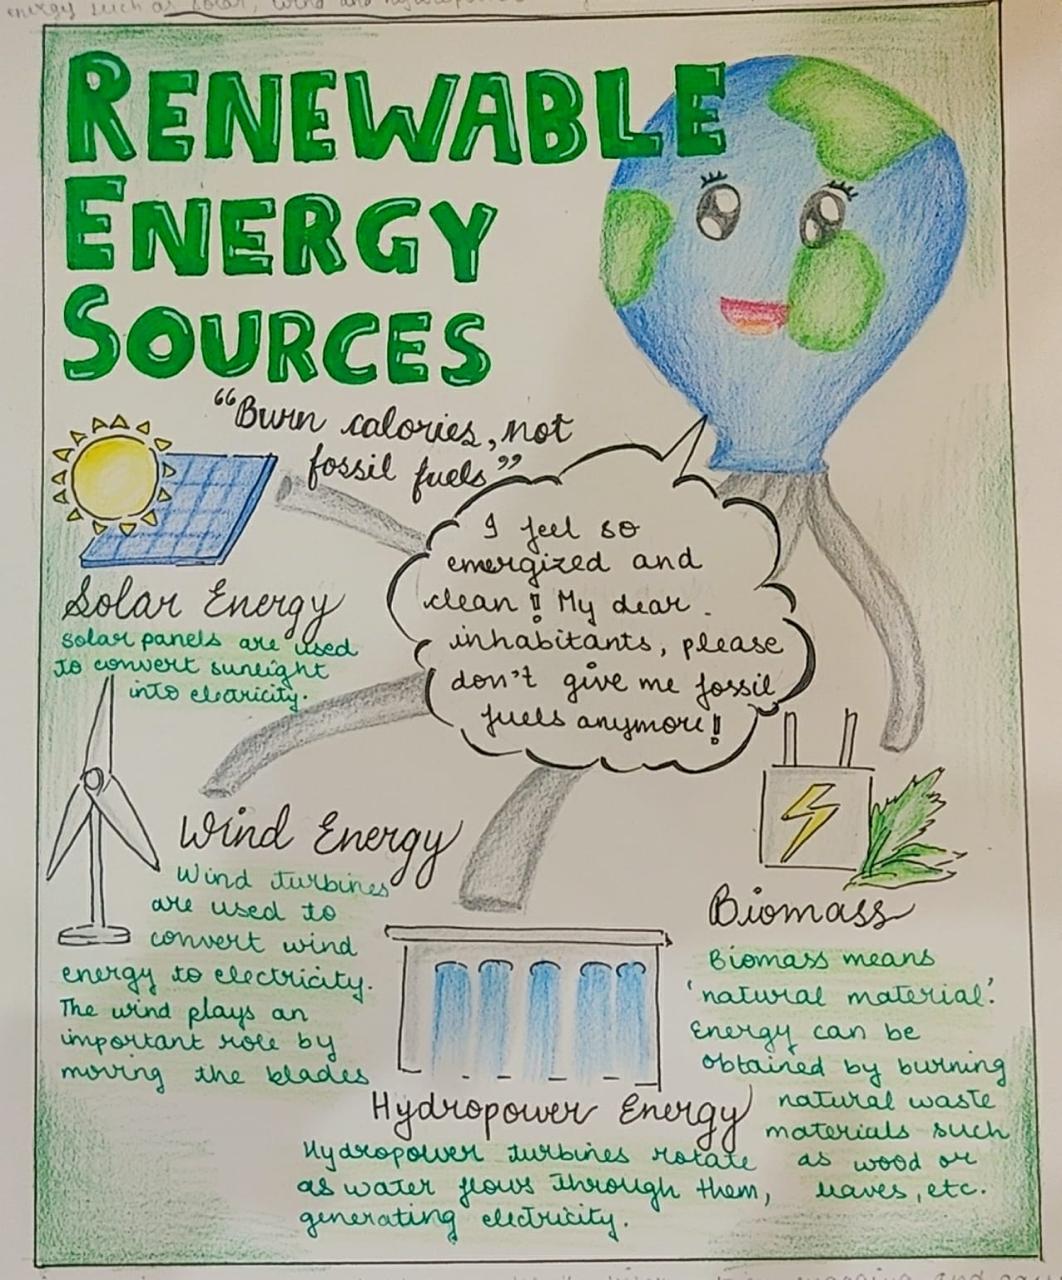 energy such as solar, wind and hydropower
RENEWABLE
ENERGY
SOURCES
"Burn calories, not
fossil fuels"
I feel so
energized and
clean! My dear
inhabitants, please
don't give me fossil
fuels anymore!
Solar Energy
Solar panels are used
to convert sunlight
into electricity.
Wind Energy
Wind turbines
are used to
convert wind
energy to electricity.
The wind plays an
important role by
moving the blades
Hydropower Energy
Hydropower turbines rotate
as water flows through them,
generating electricity.
Biomass
Biomass means
'natural material'.
Energy can be
obtained by burning
natural waste
materials such
as wood or
leaves, etc.